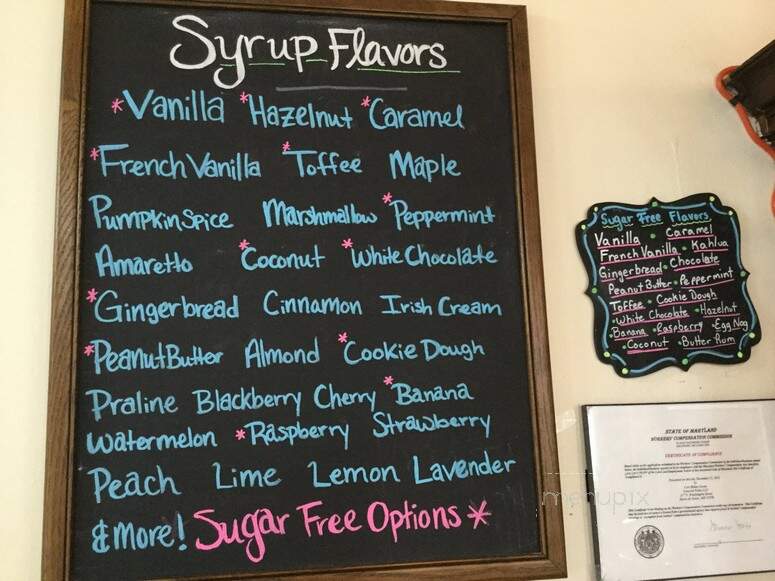 Syrup Flavors
*Vanilla *Hazelnut *Caramel
*French Vanilla *Toffee Maple
Pumpkin Spice Marshmallow *Peppermint
Amaretto *Coconut *White Chocolate
*Gingerbread Cinnamon Irish Cream
*Peanut Butter Almond *Cookie Dough
Praline Blackberry Cherry *Banana
Watermelon *Raspberry Strawberry
Peach Lime Lemon Lavender
& more! Sugar Free Options *
Sugar Free Flavors
Vanilla • Caramel
French Vanilla • Kahlua
Gingerbread • Chocolate
Peanut Butter • Peppermint
Toffee • Cookie Dough
• White Chocolate • Hazelnut
• Banana • Raspberry • Egg Nog
• Coconut • Butter Rum
STATE OF MARYLAND
WORKERS' COMPENSATION COMMISSION
CERTIFICATE OF COMPLIANCE
menupix